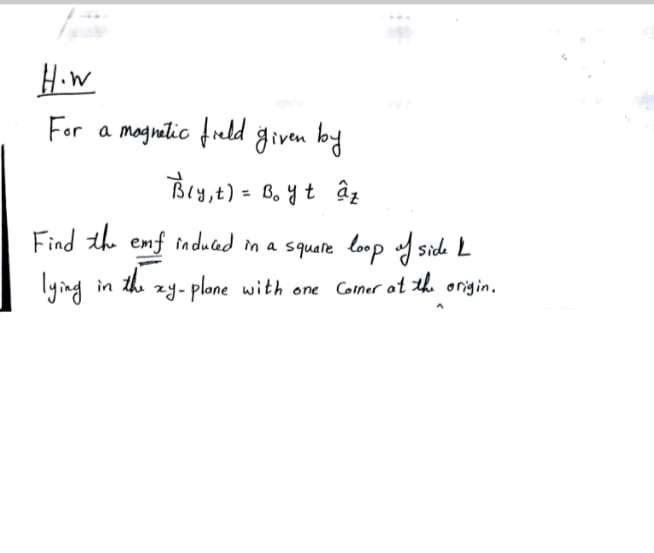 H.W
For a magnetic field given by
B⃗(y,t) = B₀ y t âz
Find the emf induced in a square loop of side L
lying in the xy-plane with one Corner at the origin.